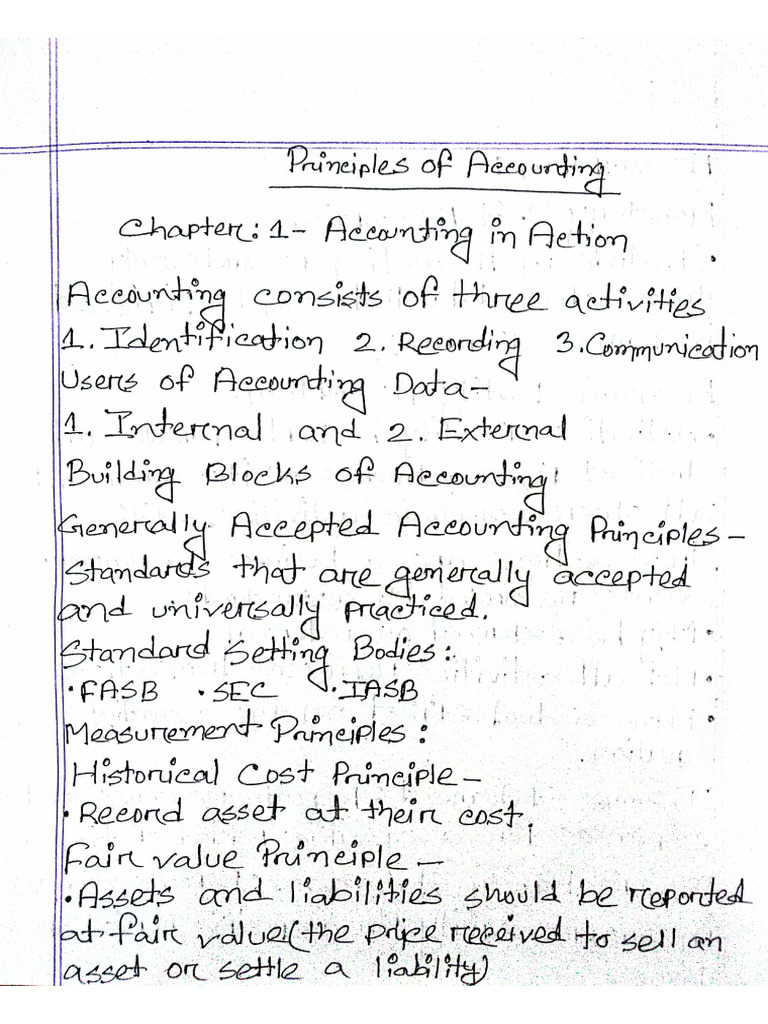 Principles of Accounting
Chapter: 1- Accounting in Action
Accounting consists of three activities
1. Identification 2. Recording 3. Communication
Users of Accounting Data-
1. Internal and 2. External
Building Blocks of Accounting
Generally Accepted Accounting Principles-
Standards that are generally accepted
and universally practiced.
Standard Setting Bodies:
• FASB • SEC • IASB
Measurement Principles:
Historical Cost Principle-
• Record asset at their cost.
Fair value Principle-
• Assets and liabilities should be reported
at fair value (the price received to sell an
asset or settle a liability)